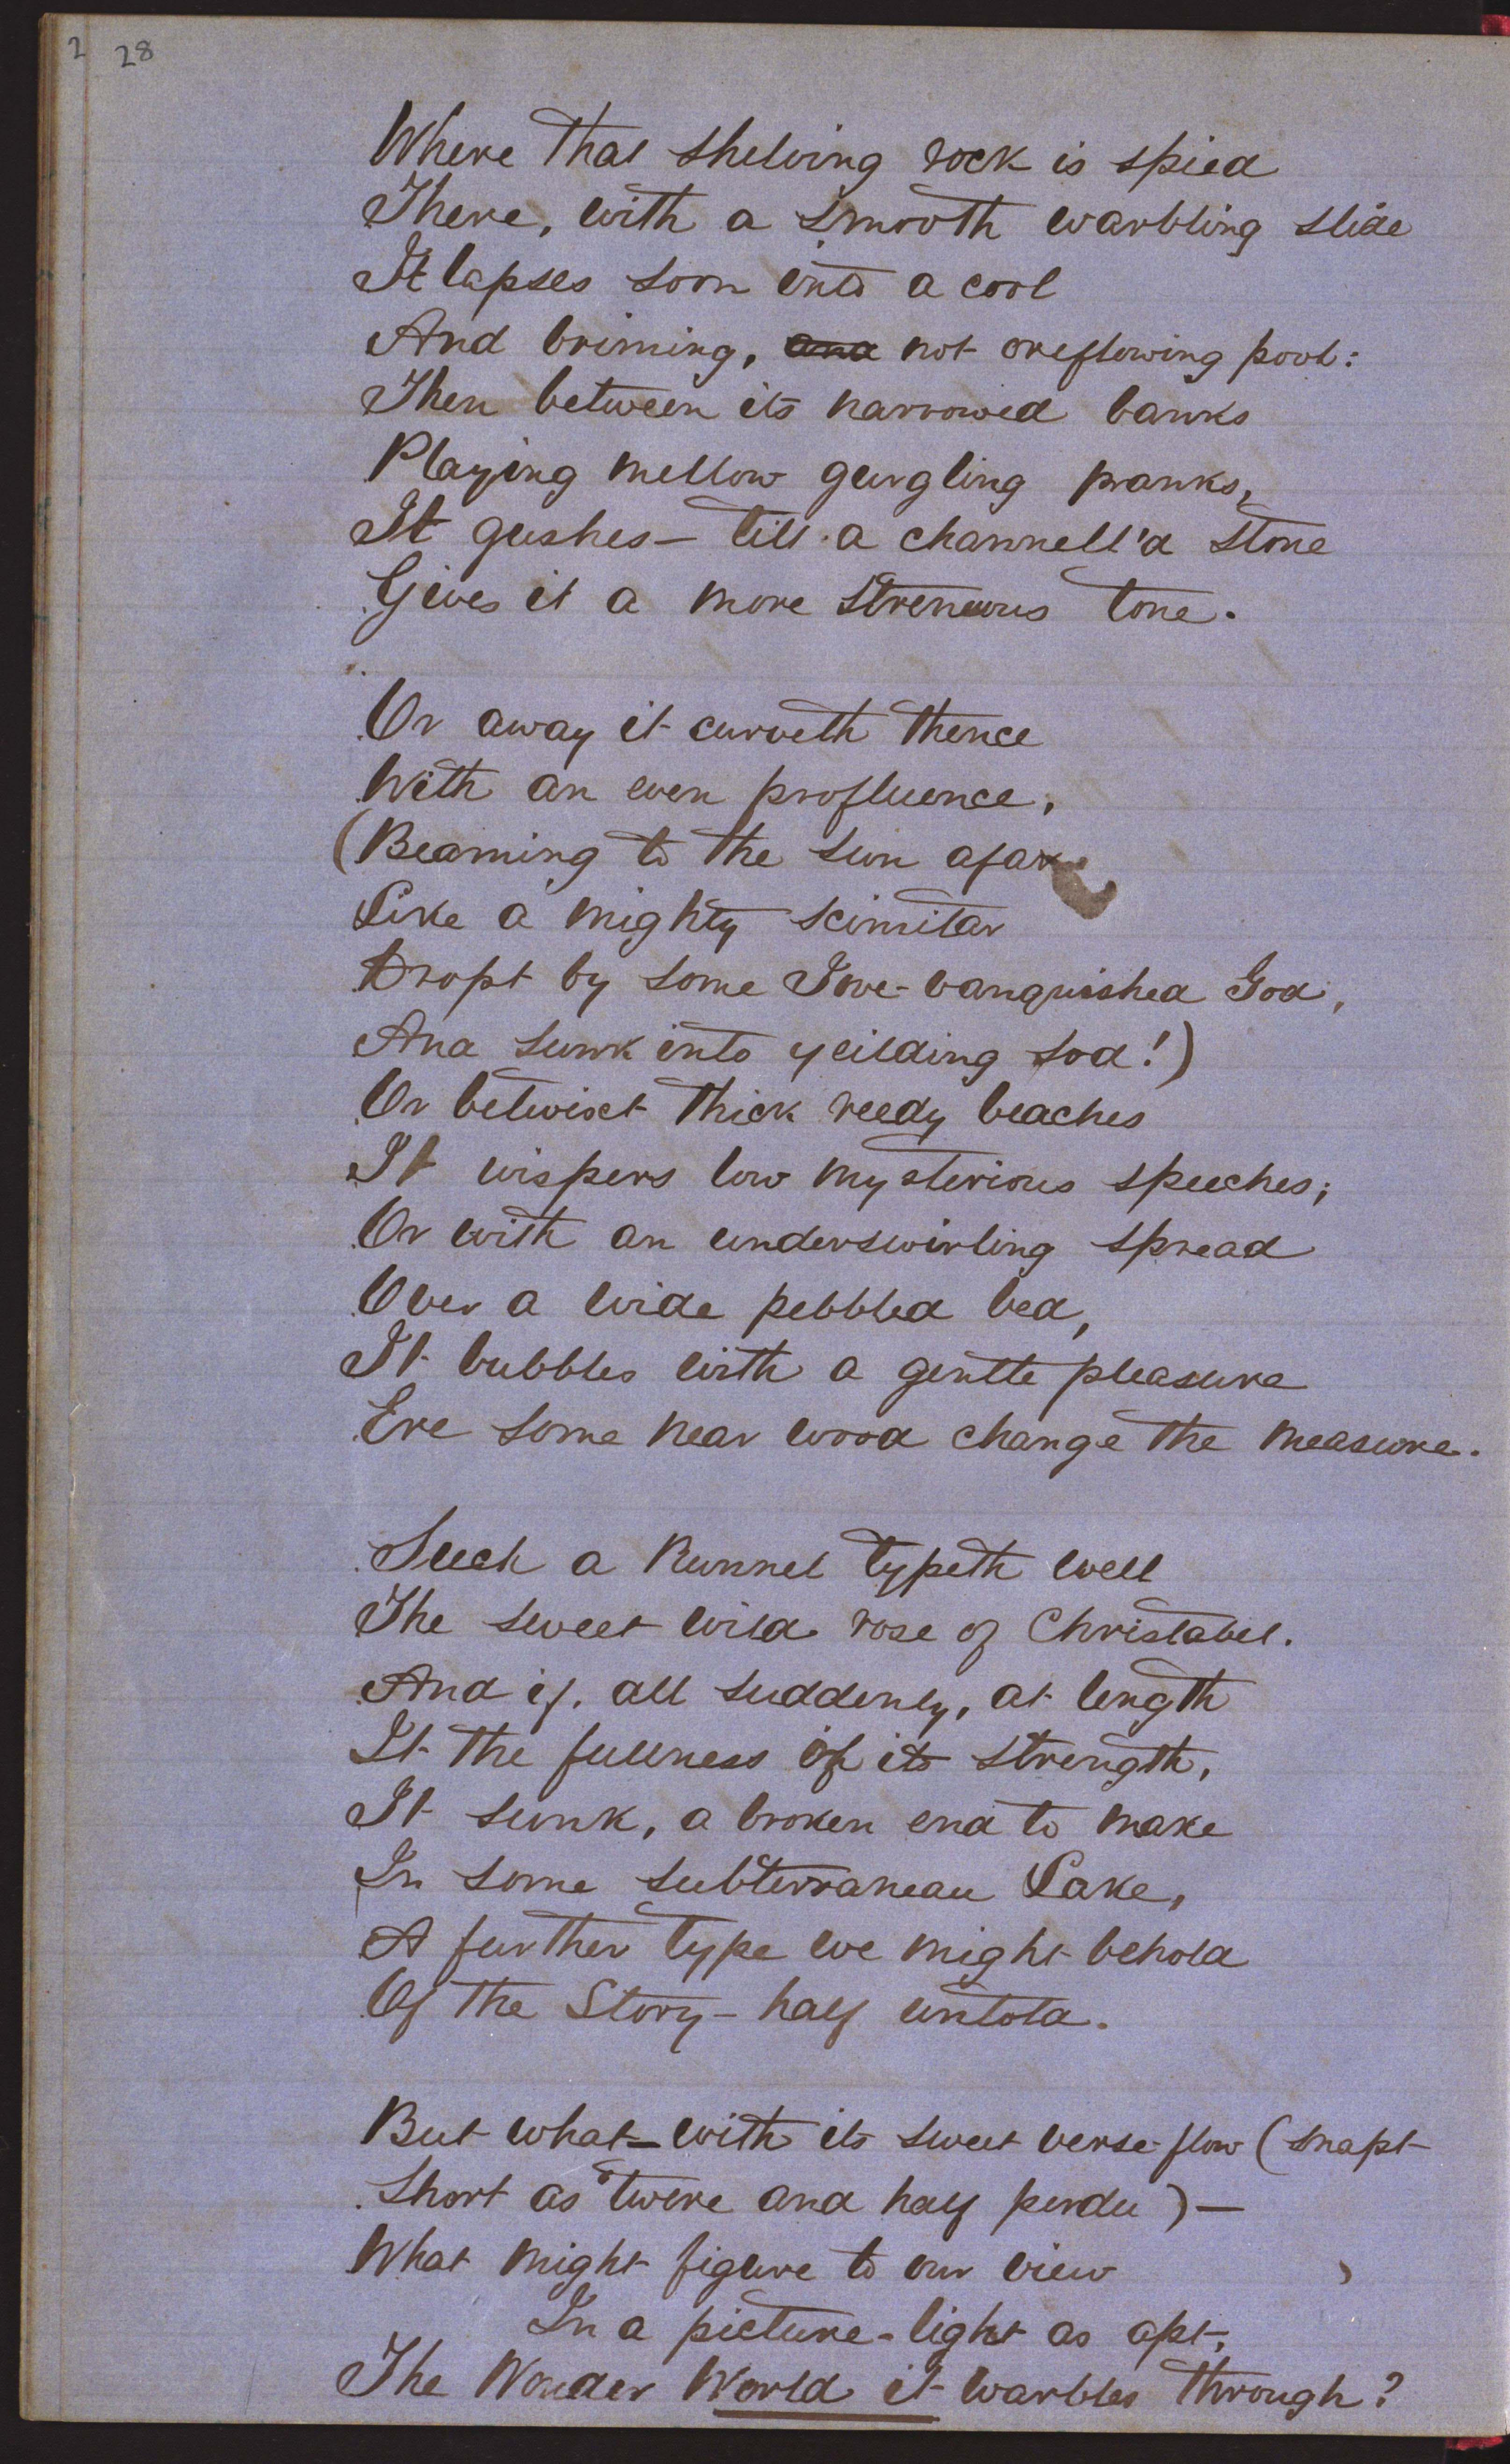 2 28
Where that shelving rock is spied
There, with a smooth warbling slide
It lapses soon into a cool
And briming, and not oreflowing pool:
Then between its narrowed banks
Playing mellow gurgling pranks,
It gushes — till a channell'd stone
Gives it a more strenuous tone.
Or away it curveth thence
With an even profluence,
(Beaming to the sun afar
Like a mighty scimitar
Dropt by some Jove-vanquished God,
And sunk into yeilding sod!)
Or betwixt thick reedy beaches
It wispers low mysterious speeches;
Or with an underswirling spread
Over a wide pebbled bed,
It bubbles with a gentle pleasure
Ere some near wood change the measure.
Such a Runnel typeth well
The sweet wild rose of Christabel.
And if, all suddenly, at length
It the fullness of its strength,
It sunk, a broken end to make
In some subterranean Lake,
A further type we might behold
Of the Story — half untold.
But what — with its sweet verse-flow (snapt
Short as 'twere and half perdu) —
What might figure to our view
In a picture-light as apt,
The Wonder World it warbles through?